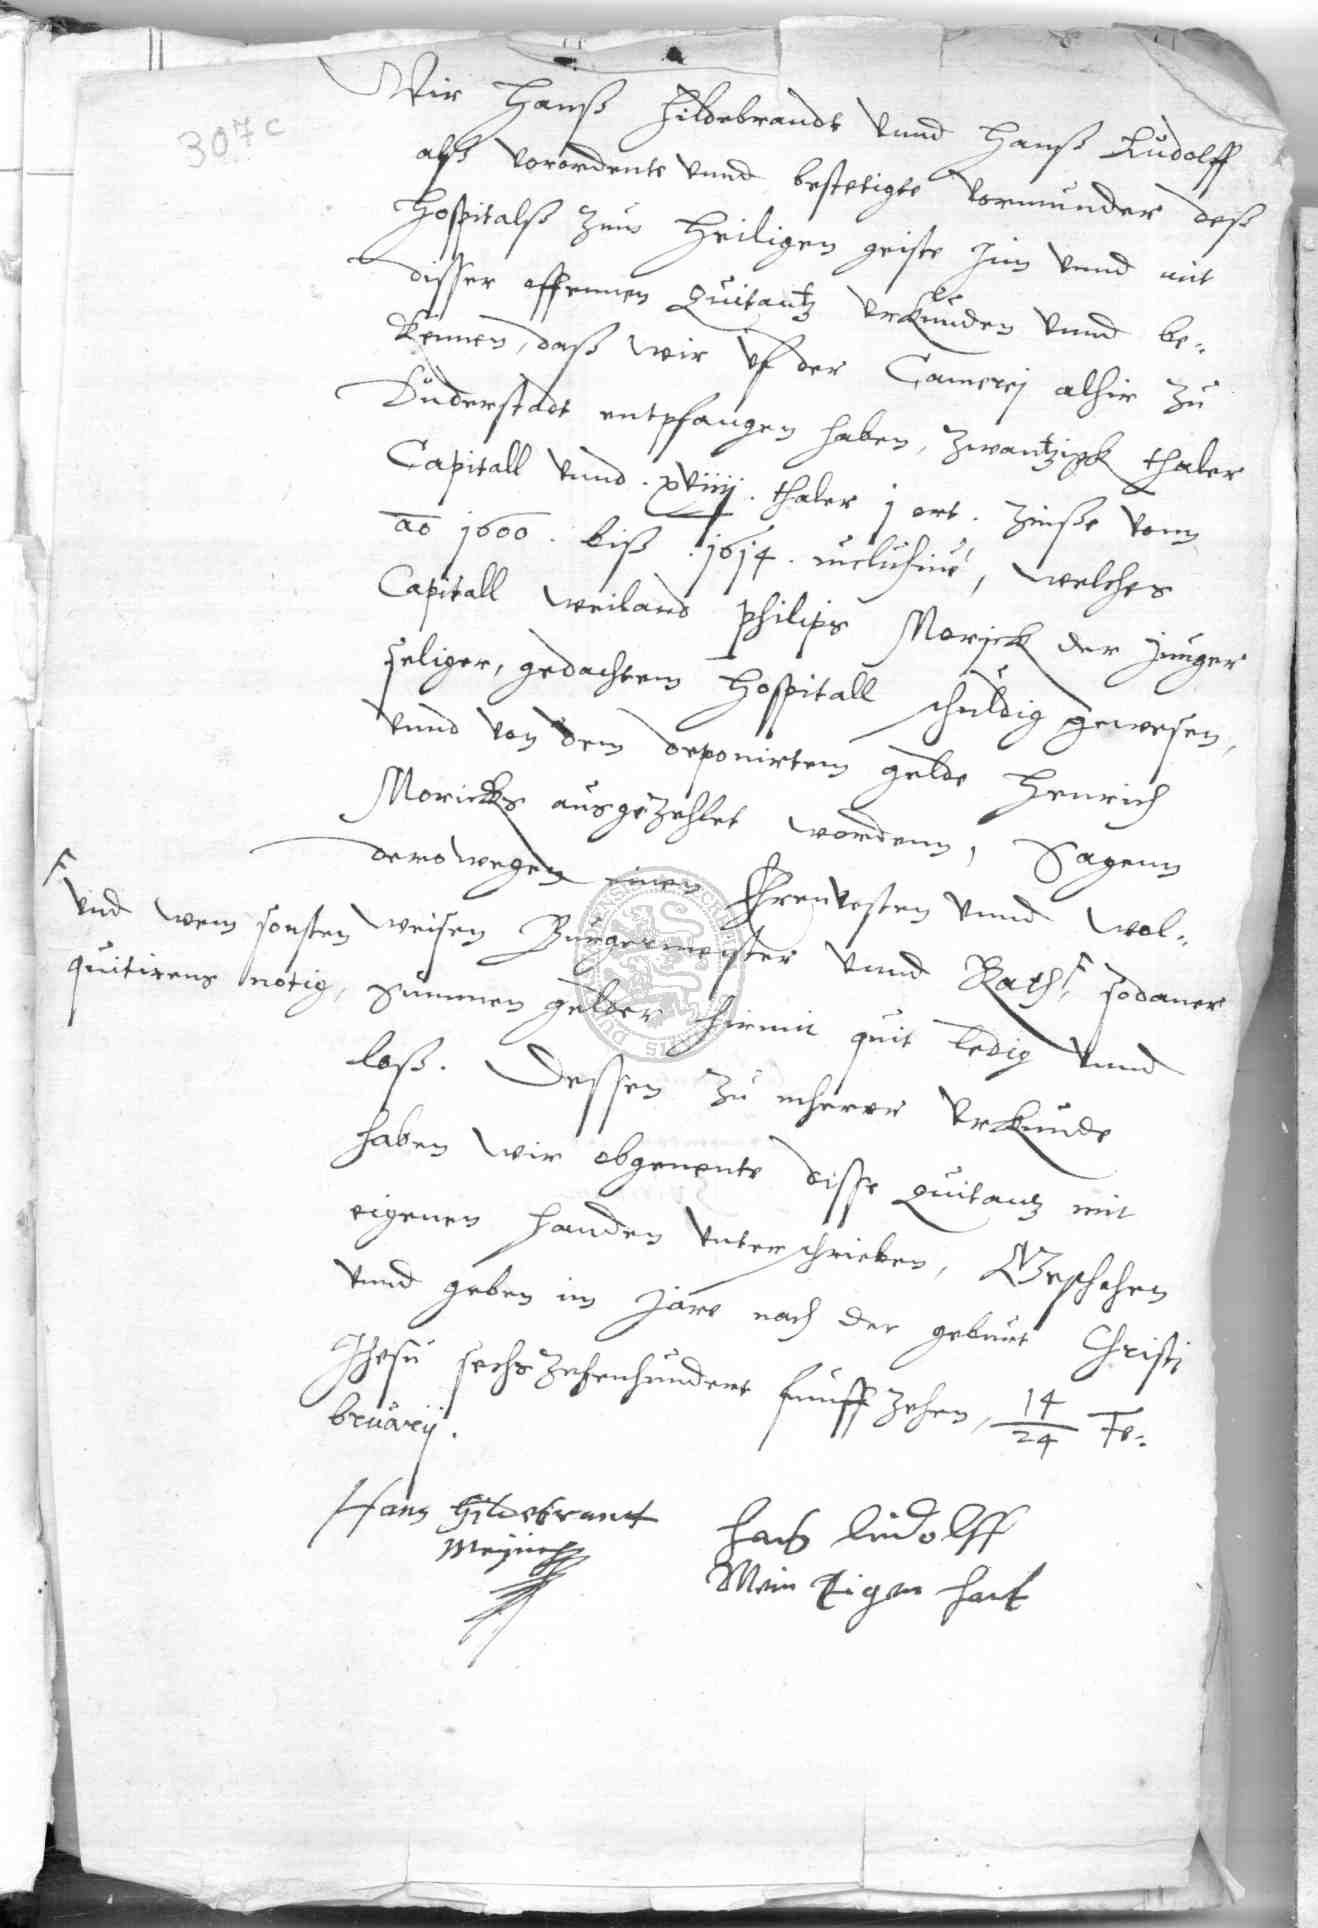 307c
Wir Hanß Hildebrandt vnnd Hanß Ludolff
alß verordente vnnd bestetigte Vormunder deß
Hospitalß zum Heiligen geiste hin vnnd mit
disser offennen Quitantz vrkunden vnnd be-
kennen, daß wir vf der Camerej alhir zu
Duderstadt entpfangen haben, zwantzigk thaler
Capitall vnnd . xviiij . thaler j ort . Zinße vom
ao 1600 . biß . 1614 . inclusiue, welches
Capitall weiland Philips Morick der Junger
seliger, gedachtem Hospitall schuldig gewesen,
vnnd von dem deponirtem gelde Henrich
Moricks ausgezehlet wordenn, Sagenn
derowegen einen Ehrnvesten vnnd wol-
weisen Burgermeister vnnd Rath F sodaner
F vnd wem sonsten
quitirens nötig,
Summen gelder hirmit quit ledig vnnd
loß. Dessen zu mherer vrkunde
haben wir obgenente disse Quitantz mit
eigenen handen vnterschrieben, Geschehen
vnnd geben im Jare nach der geburt Christi
Jhesu sechszehenhundert funffzehen, 14/24 Fe-
bruarij.
Hans Hildebrant
Hans ludolff
Mein Eigen hant